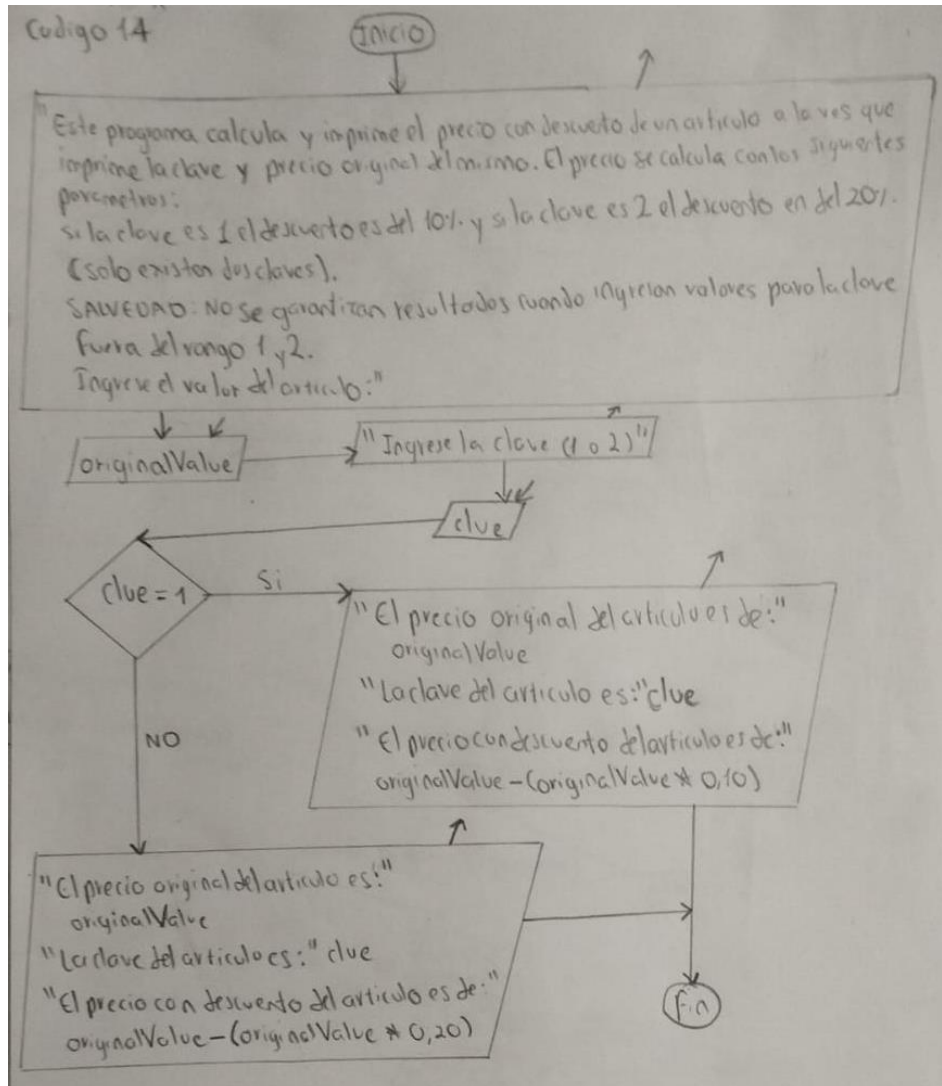 Codigo 14
Inicio
"Este programa calcula y imprime el precio con descuento de un articulo a la ves que
imprime la clave y precio original del mismo. El precio se calcula con los siguientes
parametros:
si la clave es 1 el descuento es del 10% y si la clave es 2 el descuento en del 20%.
(solo existen dos claves).
SALVEDAD: NO se garantizan resultados cuando ingresan valores para la clave
fuera del rango 1 y 2.
Ingrese el valor del articulo:"
originalValue
"Ingrese la clave (1 o 2)"
clue
clue = 1
Si
"El precio original del articulo es de:"
originalValue
"La clave del articulo es:" clue
"El precio con descuento del articulo es de:"
originalValue - (originalValue * 0,10)
NO
"El precio original del articulo es:"
originalValue
"La clave del articulo es:" clue
"El precio con descuento del articulo es de:"
originalValue - (originalValue * 0,20)
Fin